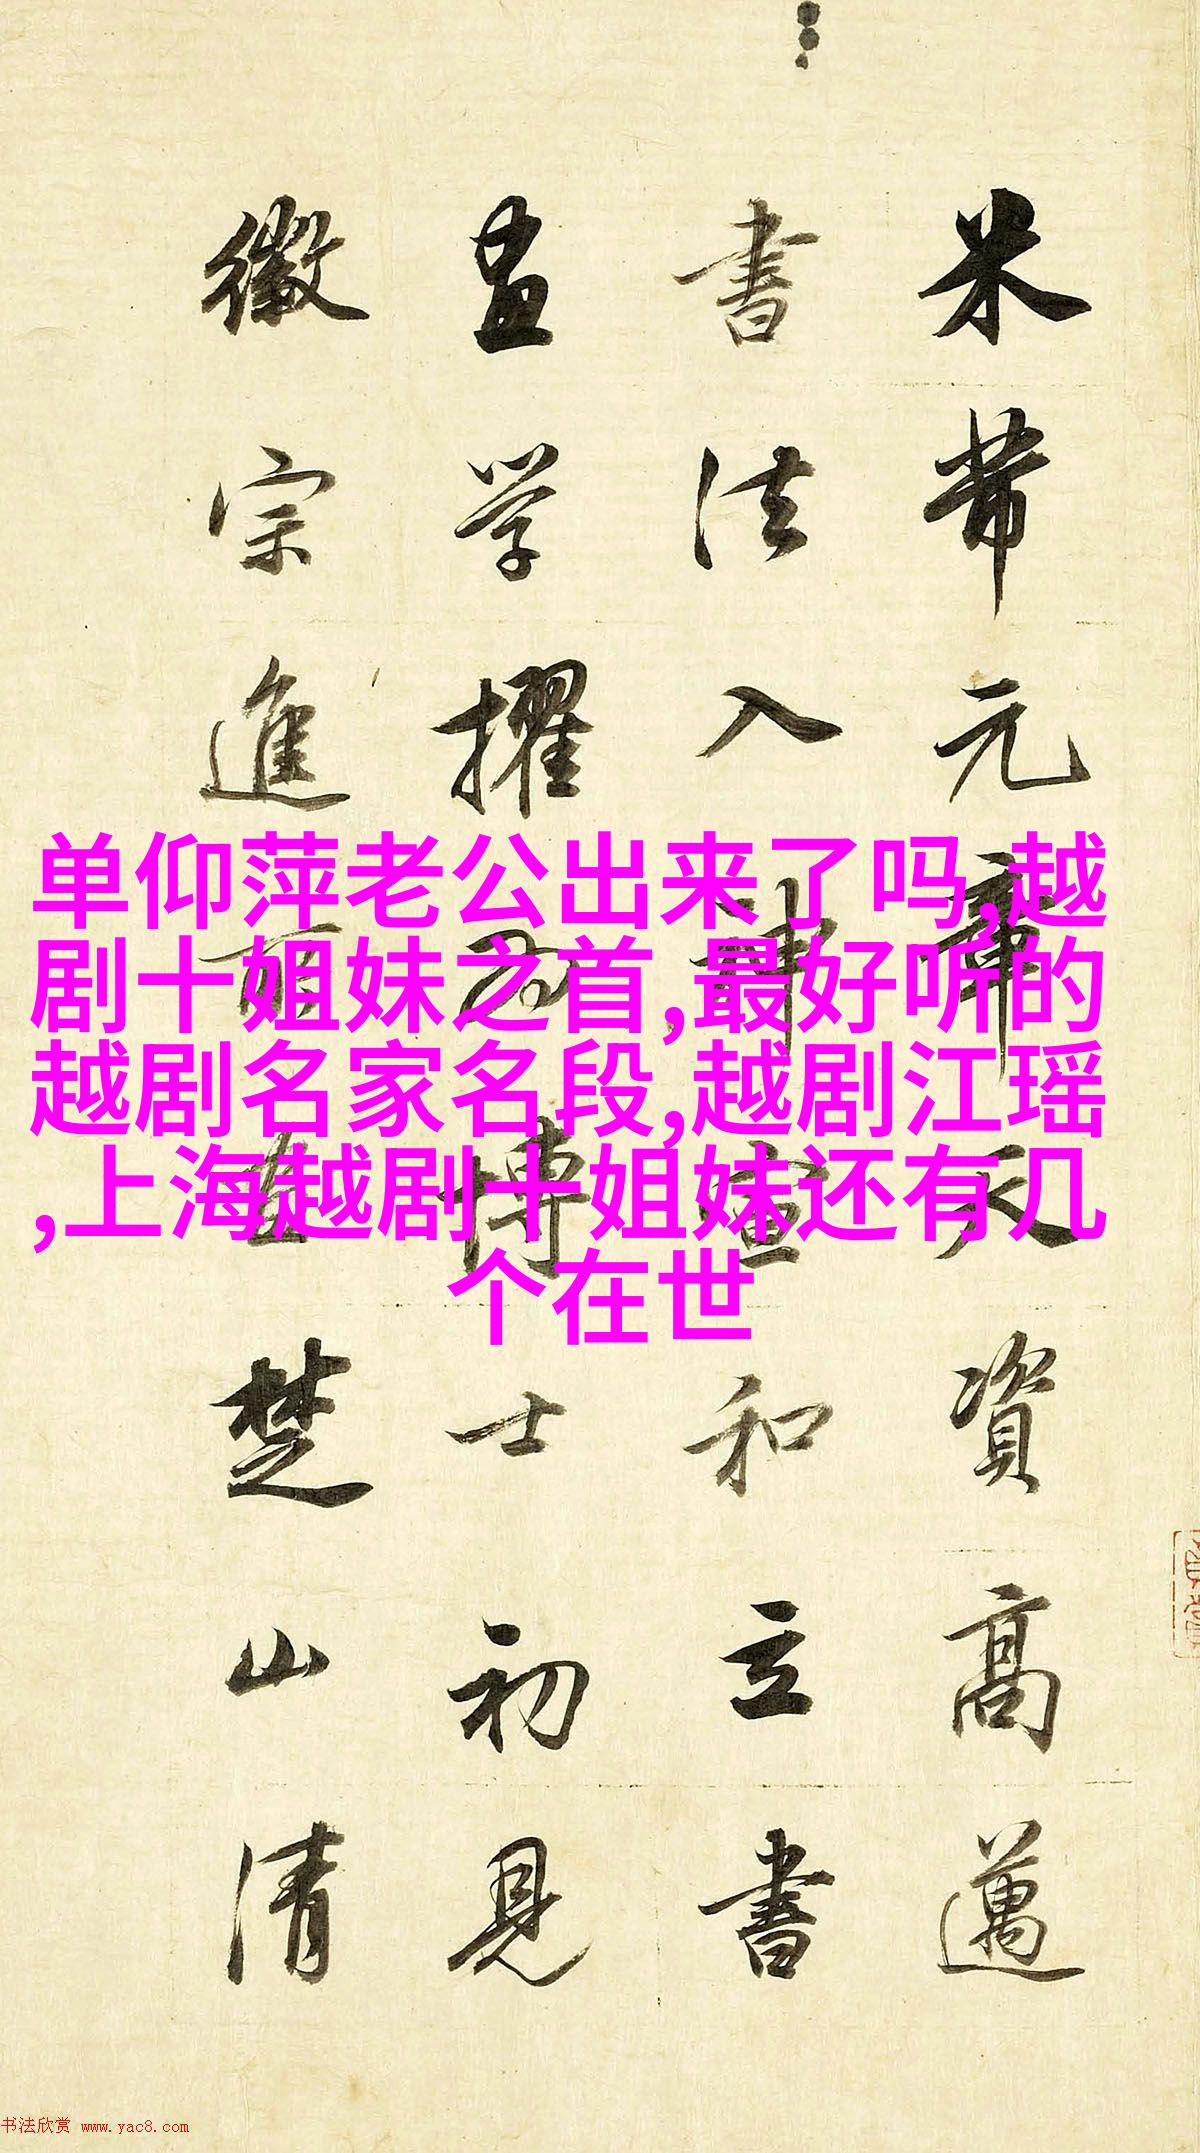 米芾元章天資高邁
書法入神宣和立書
畫学擢為博士初見
徽宗進所画楚山清
单仰萍老公出来了吗,越
剧十姐妹之首,最好听的
越剧名家名段,越剧江瑶
,上海越剧十姐妹还有几
个在世
书法欣赏 www.yac8.com